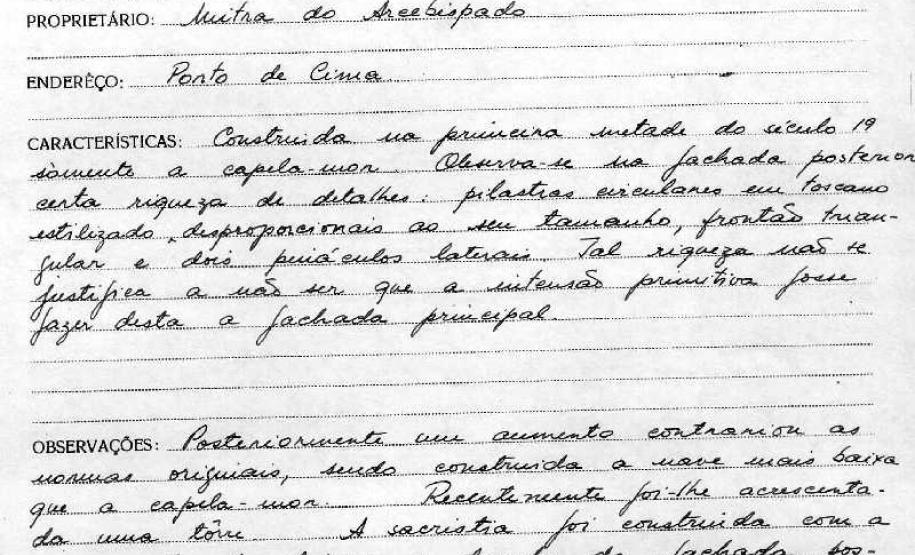 PROPRIETÁRIO: Mitra do Arcebispado
ENDERÊÇO: Porto de Cima
CARACTERÍSTICAS: Construida na primeira metade do século 19
sòmente a capela-mor. Observa-se na fachada posterior
certa riqueza de detalhes: pilastras circulares em toscano
estilizado, desproporcionais ao seu tamanho, frontão trian-
gular e dois pináculos laterais. Tal riqueza não se
justifica a não ser que a intensão primitiva fosse
fazer desta a fachada principal.
OBSERVAÇÕES: Posteriormente um aumento contrariou as
normas originais, sendo construida a nave mais baixa
que a capela-mor. Recentemente foi-lhe acrescenta-
da uma tôrre. A sacristia foi construida com a
da fachada pos-